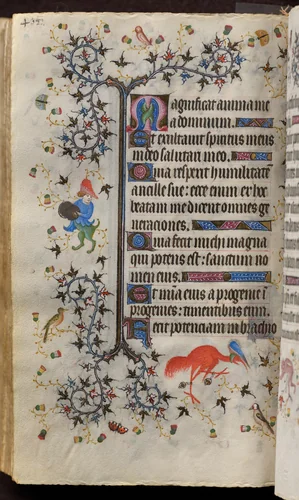 Magnificat anima me
a dominum.
Et exultavit spiritus meus
in deo salutari meo.
Quia respexit humilitatem
ancille sue: ecce enim ex hoc
beatam me dicent omnes ge
nerationes.
Quia fecit michi magna
qui potens est: sanctum no
men eius.
Et mia eius a progenie in
progenies: timentibus eum.
Fecit potenciam in brachio